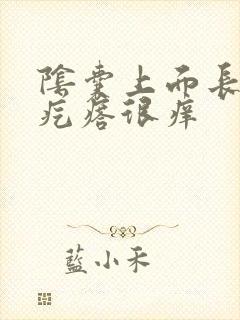 陰囊上面長
疙瘩很痒
藍小禾